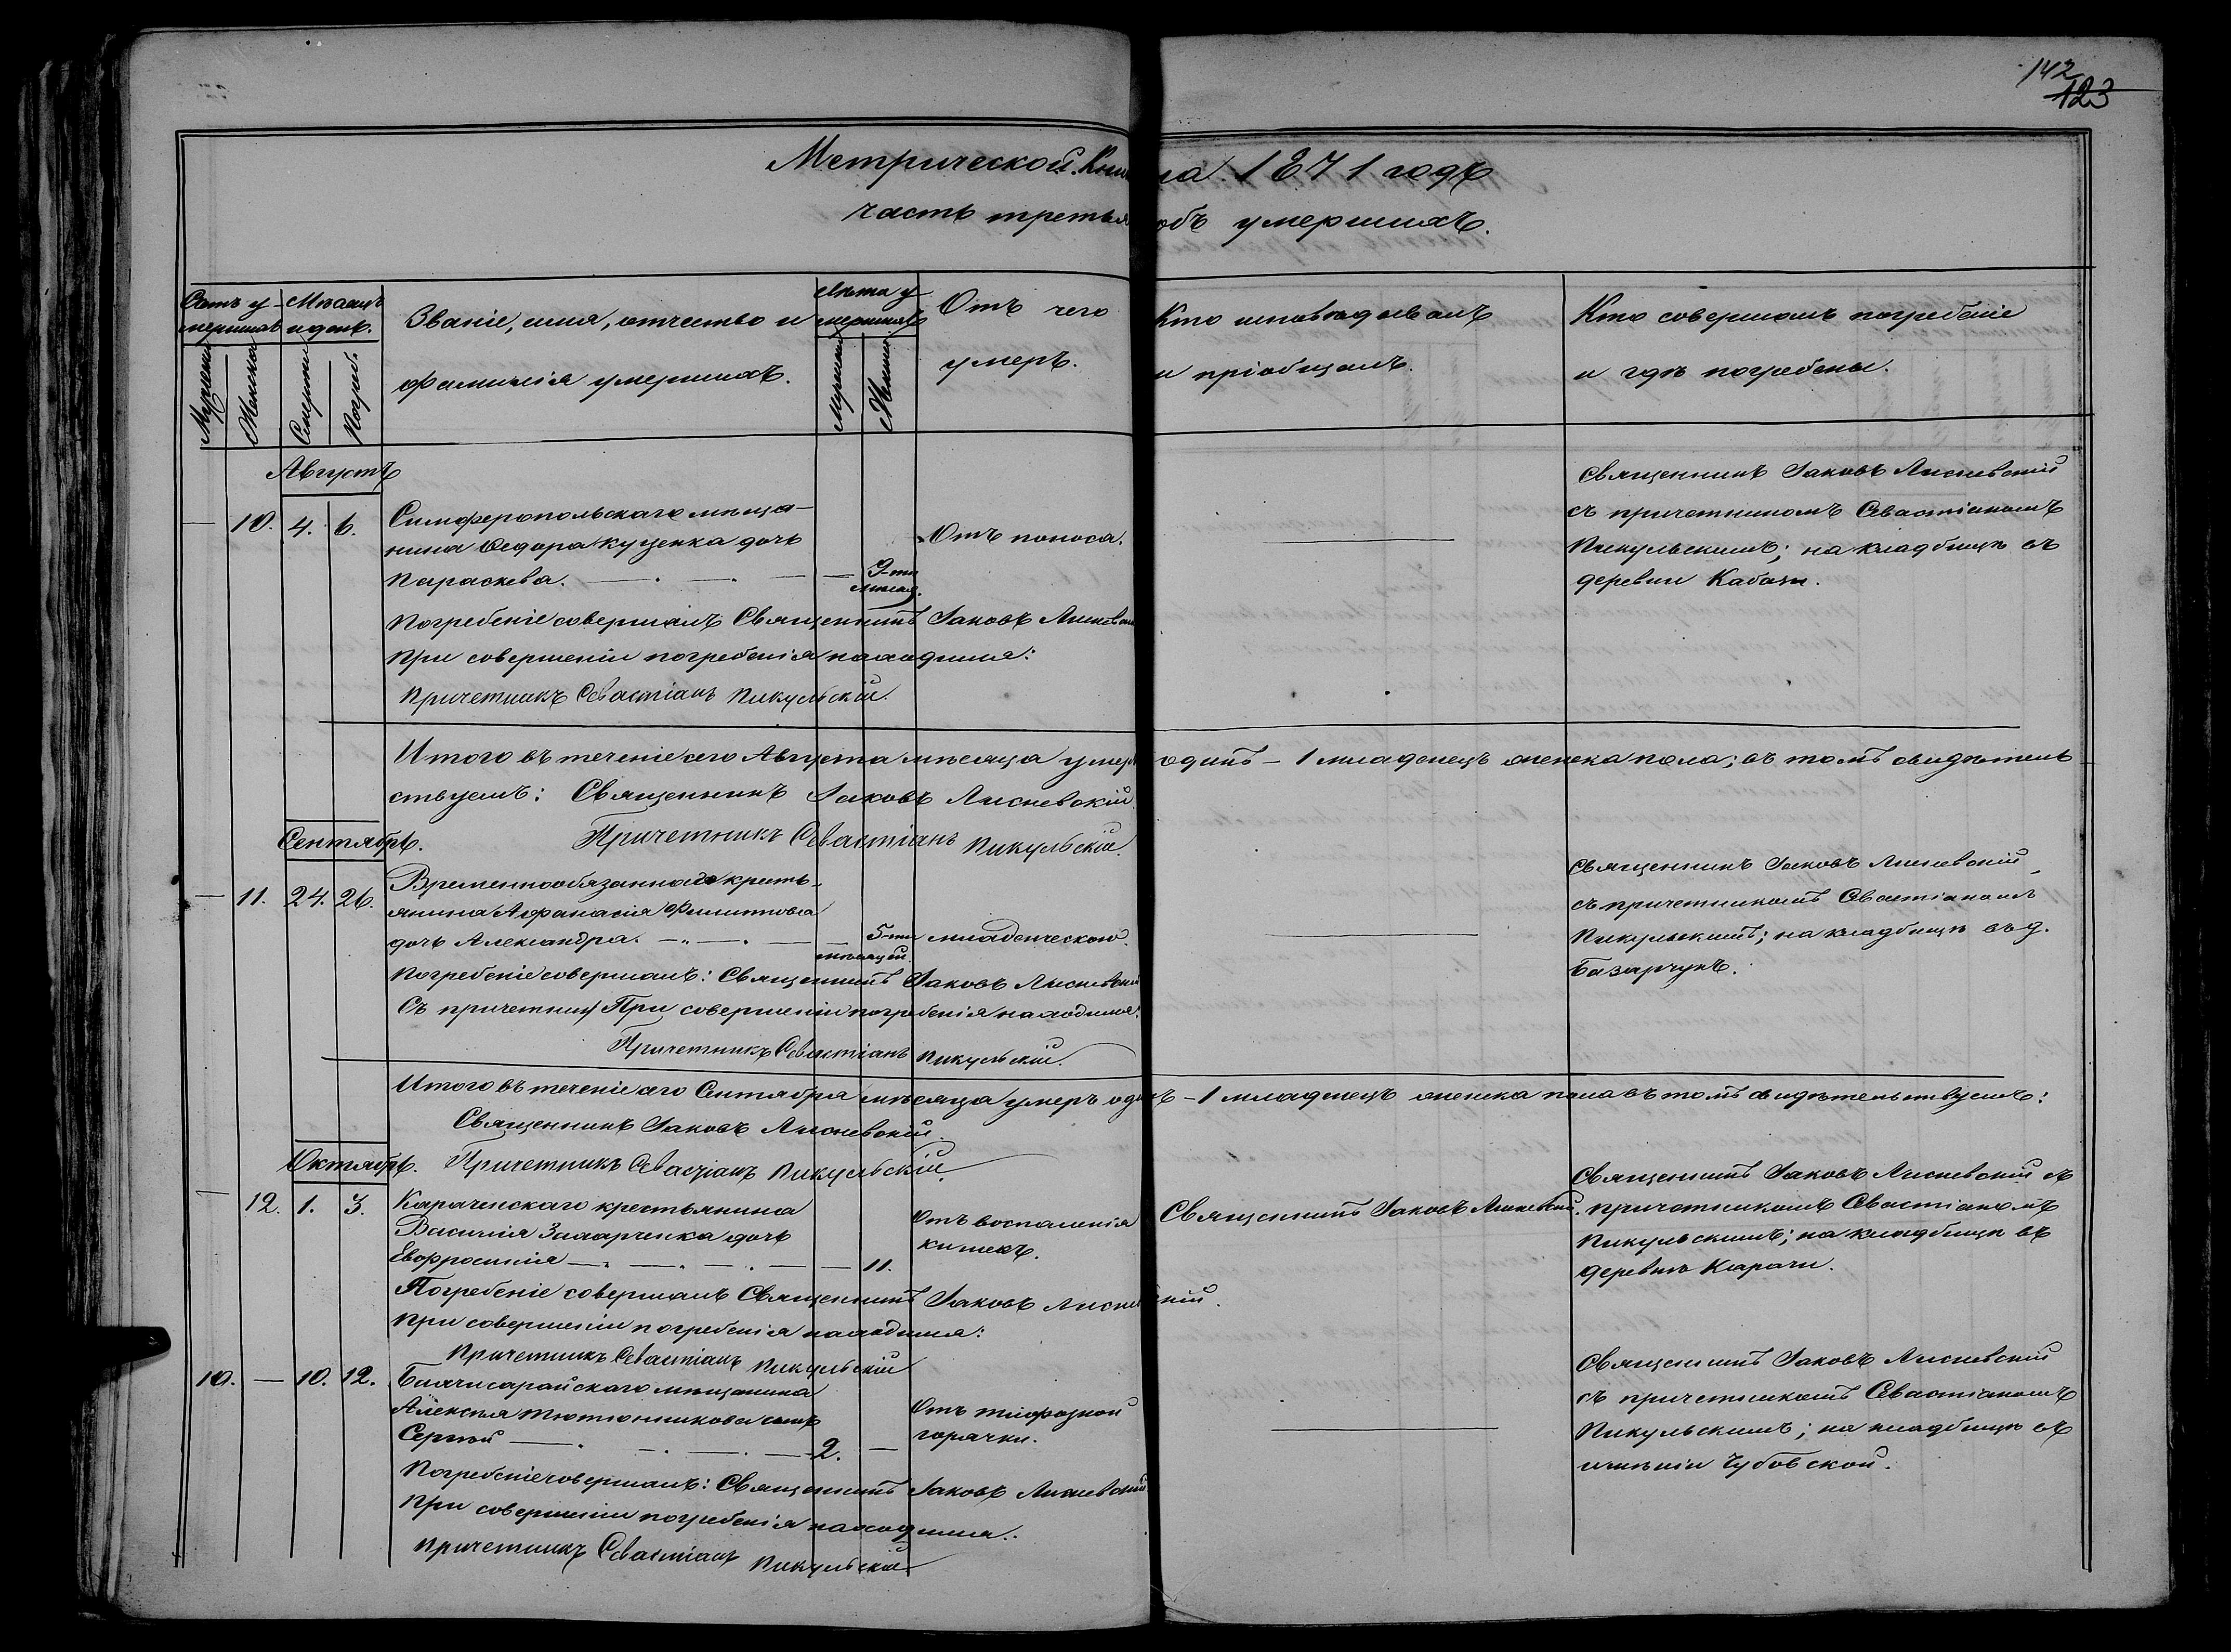 142
123
Метрической Книги на 1871 годъ
часть третья объ умершихъ.
Счетъ умершихъ
Мѣсяцъ и день.
Званіе, имя, отчество и
фамилія умершихъ.
Лѣта умершихъ
Отъ чего
умеръ.
Кто исповѣдывалъ
и пріобщалъ.
Кто совершалъ погребеніе
и гдѣ погребены.
Мужескій
Женскій
Смерти
Погреб.
Мужескій
Женскій
Августъ
— 10. 4. 6.
Симферопольскаго мѣща-
нина Ѳедора Куценка дочь
Параскева.
9-ти
мѣсяц.
Отъ поноса.
Священникъ Іаковъ Лисневскій
съ причетникомъ Севастіаномъ
Пикульскимъ; на кладбищѣ въ
деревни Кабази.
Погребеніе совершалъ Священникъ Іаковъ Лисневскій
При совершеніи погребенія находился:
Причетникъ Севастіанъ Пикульскій.
Итого въ теченіе сего Августа мѣсяца умеръ одинъ – 1 младенецъ женска пола; въ томъ свидѣтель-
ствуемъ: Священникъ Іаковъ Лисневскій.
Причетникъ Севастіанъ Пикульскій.
Сентябрь.
— 11. 24. 26.
Временнообязаннаго кресть-
янина Аѳанасія Филиппова
дочь Александра.
5-ти
мѣсяцей.
младенческою.
Священникъ Іаковъ Лисневскій
съ причетникомъ Севастіаномъ
Пикульскимъ; на кладбищѣ въ д.
Базарчукъ.
Погребеніе совершалъ: Священникъ Іаковъ Лисневскій
Съ причетник При совершеніи погребенія находился:
Причетникъ Севастіанъ Пикульскій.
Итого въ теченіе сего Сентября мѣсяца умеръ одинъ – 1 младенецъ женска пола въ томъ свидѣтельствуемъ:
Священникъ Іаковъ Лисневскій.
Причетникъ Севастіанъ Пикульскій.
Октябрь.
— 12. 1. 3.
Карачинскаго крестьянина
Василія Захарченка дочь
Евфросинія
11.
Отъ воспаленія
кишекъ.
Священникъ Іаковъ Лисневскій.
Священникъ Іаковъ Лисневскій съ
причетникомъ Севастіаномъ
Пикульскимъ; на кладбищѣ въ
деревнѣ Карачи.
Погребеніе совершалъ Священникъ Іаковъ Лисневскій.
При совершеніи погребенія находился:
Причетникъ Севастіанъ Пикульскій
10. — 10. 12.
Бахчисарайскаго мѣщанина
Алексѣя Тютюнникова сынъ
Сергѣй
2. —
Отъ тифозной
горячки.
Священникъ Іаковъ Лисневскій
съ причетникомъ Севастіаномъ
Пикульскимъ; на кладбищѣ въ
имѣніи Чубовской.
Погребеніе совершалъ: Священникъ Іаковъ Лисневскій
При совершеніи погребенія находился:
Причетникъ Севастіанъ Пикульскій